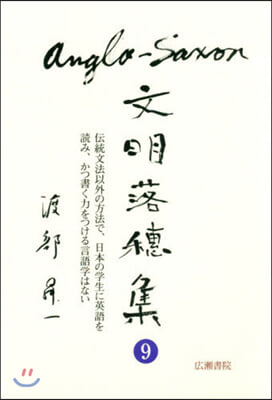 Anglo-Saxon
文明落穂集
伝統文法以外の方法で、日本の学生に英語を
読み、かつ書く力をつける言語学はない
渡部昇一
9
広瀬書院
yes24